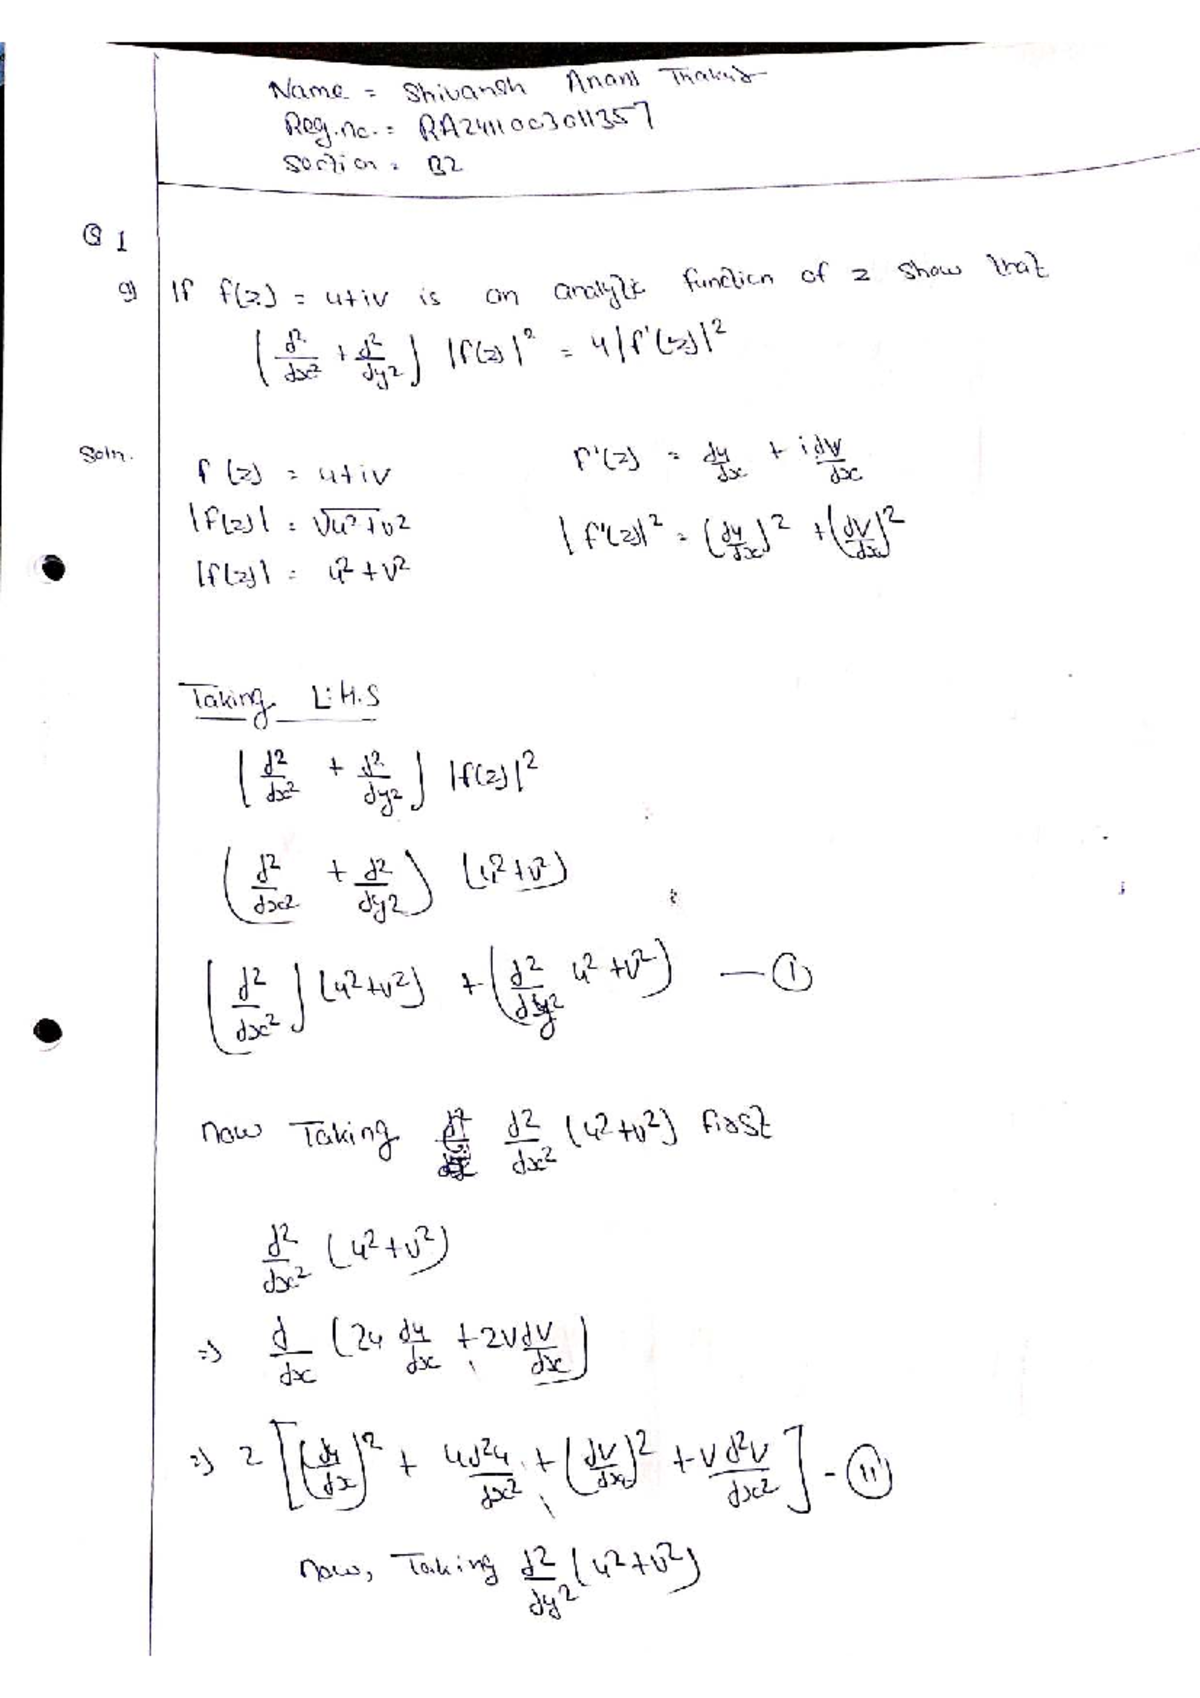 Name = Shivansh Anant Thakur
Reg.no. = RA2411003011357
Section = B2
Q 1
9) If f(z) = u+iv is an analytic function of z show that
(d²/dx² + d²/dy²) |f(z)|² = 4|f'(z)|²
Soln.
f(z) = u+iv
f'(z) = du/dx + i dv/dx
|f(z)| = √u²+v²
|f'(z)|² = (du/dx)² + (dv/dx)²
|f(z)| = u²+v²
Taking L.H.S
(d²/dx² + d²/dy²) |f(z)|²
(d²/dx² + d²/dy²) (u²+v²)
(d²/dx²) (u²+v²) + (d²/dy² u²+v²) — (i)
now Taking d²/dx² (u²+v²) first
d²/dx² (u²+v²)
=> d/dx (2u du/dx + 2v dv/dx)
=> 2 [(du/dx)² + u d²u/dx² + (dv/dx)² + v d²v/dx²] - (ii)
now, Taking d²/dy² (u²+v²)